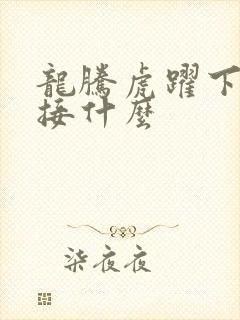 龍騰虎躍下
接什麼
柒夜夜